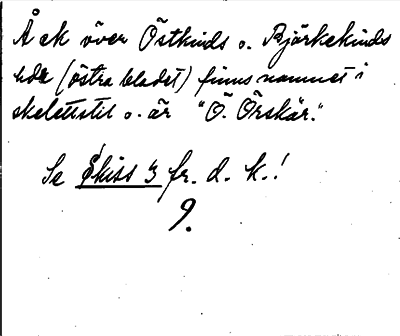 Å ek över Östkinds o. Björkekinds
hdr (östra bladet) finns namnet i
skelettstil o. är "Ö. Örskär."
Se Skiss 3 fr. d. k.!
9.